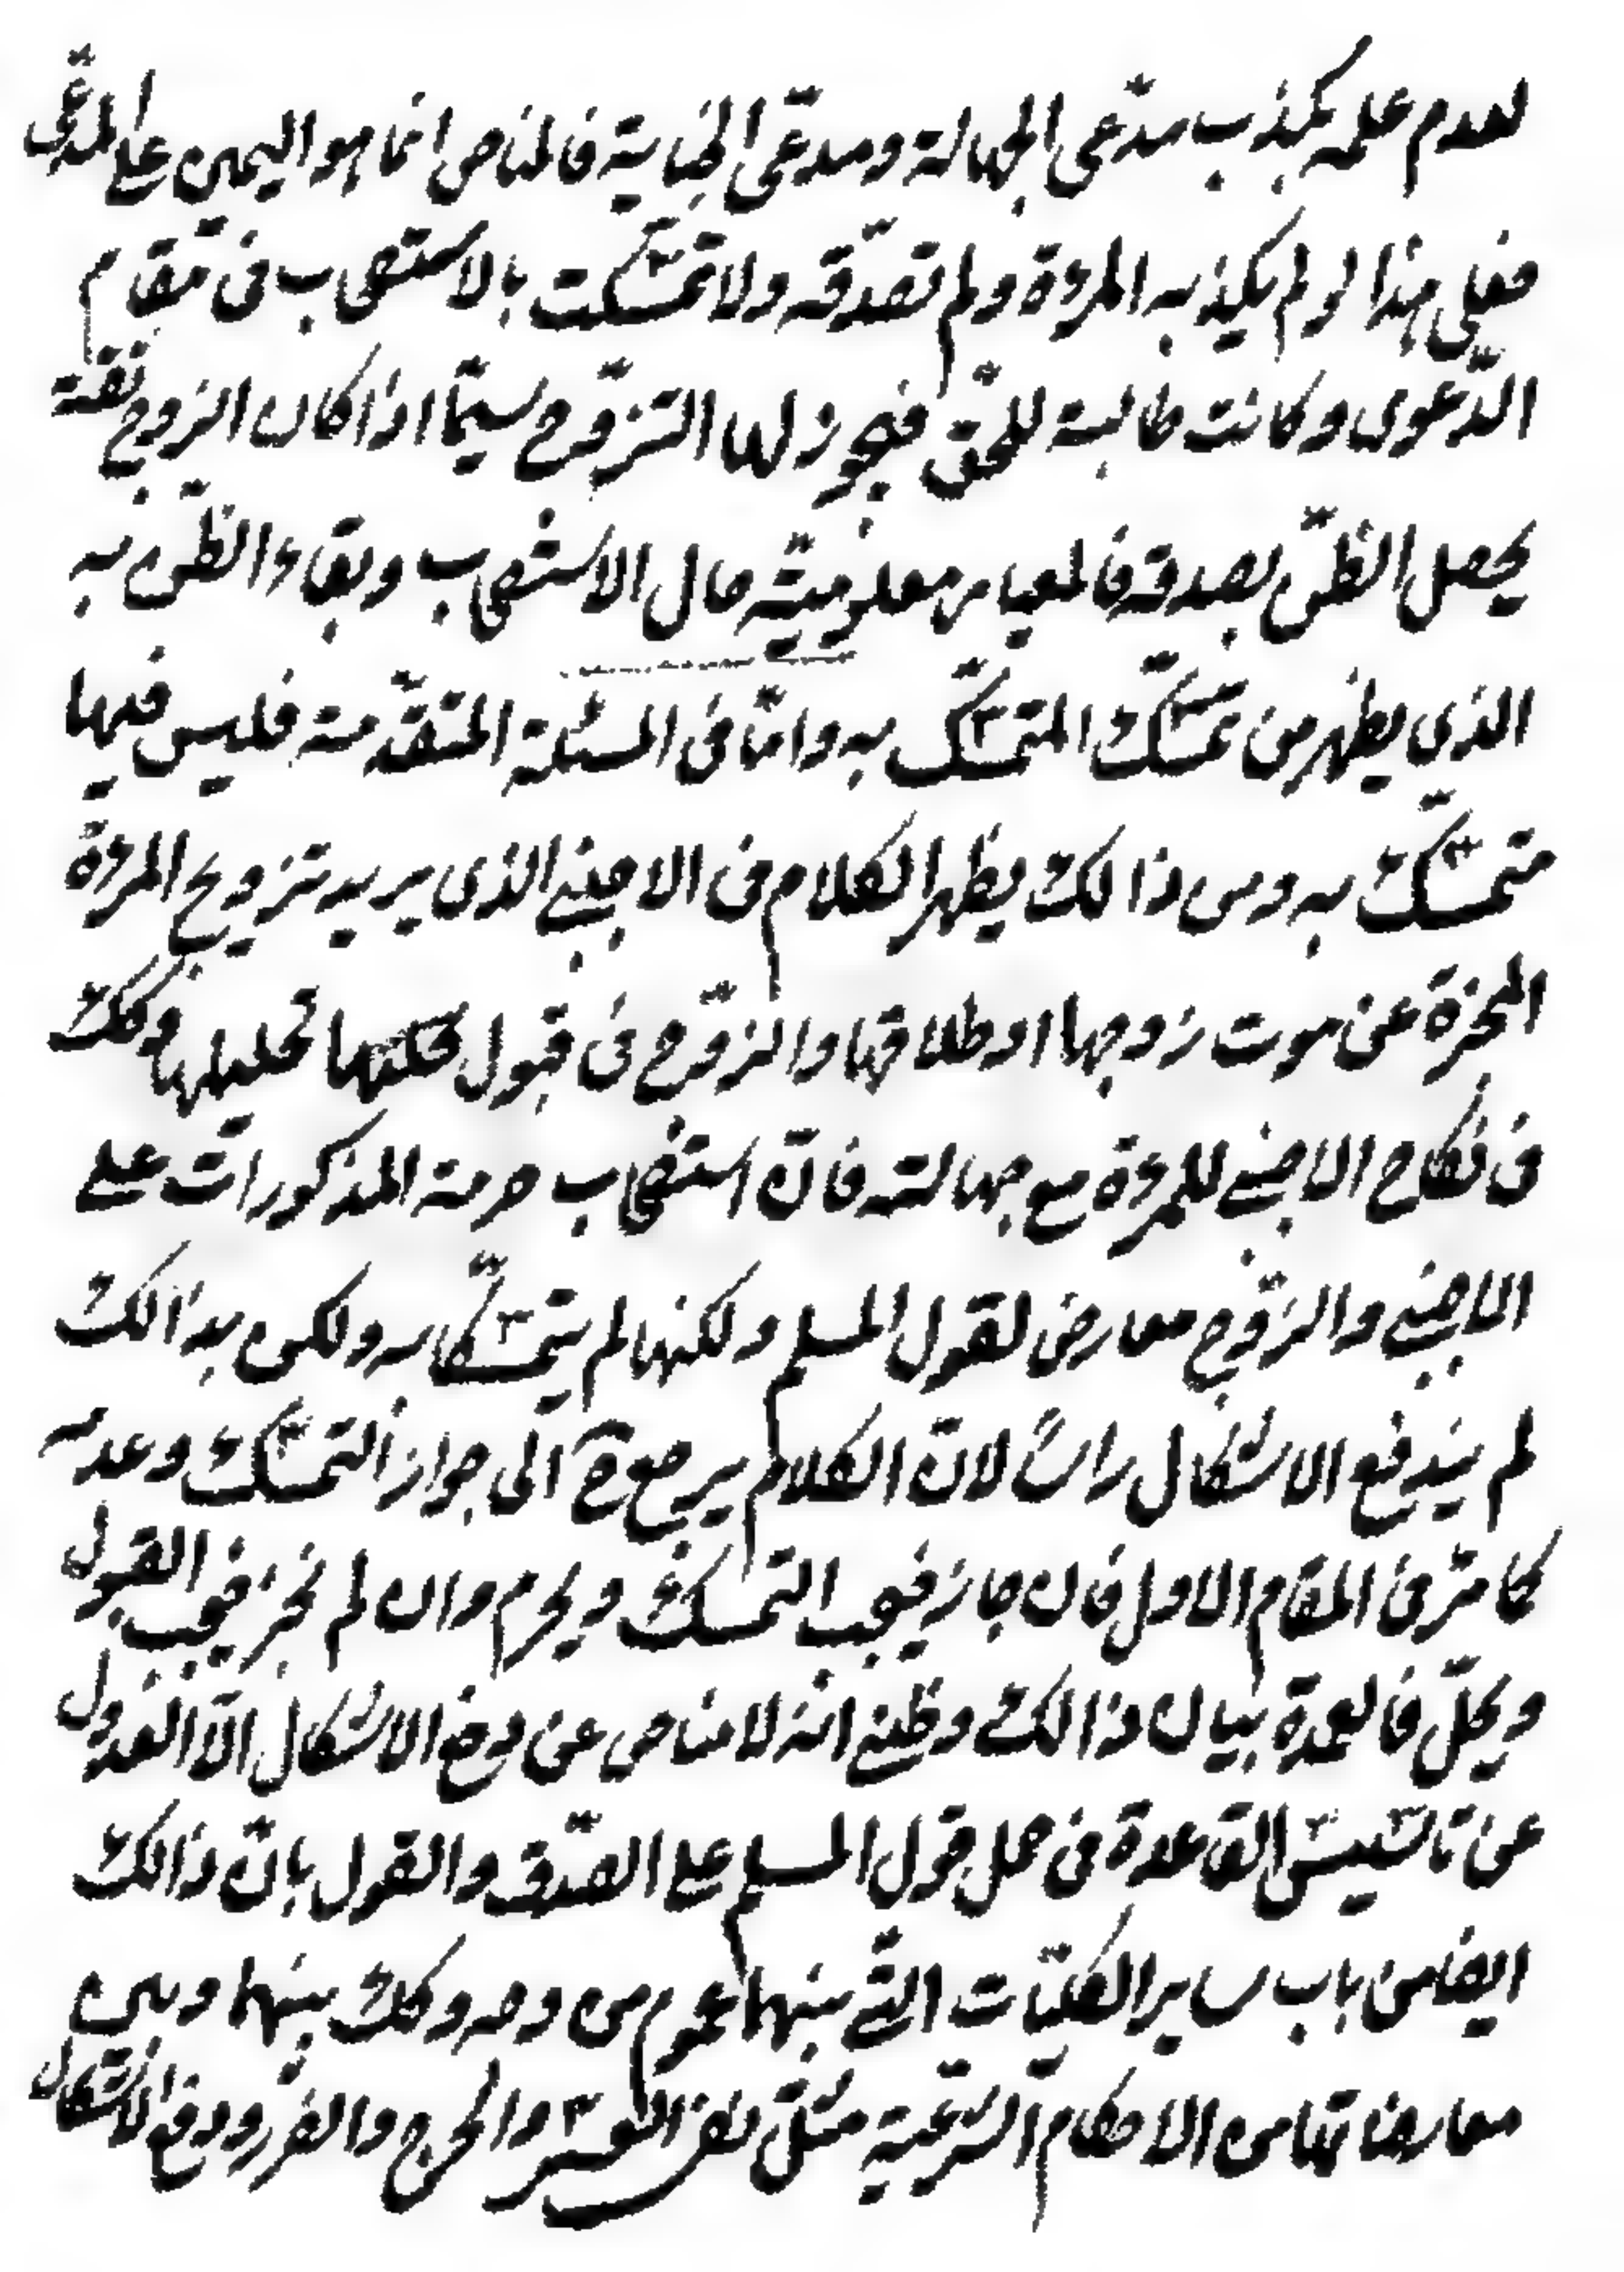 لعدم علمه بكذب مدّعى الجهالة ومدعّى الخيانة فالمناص انما هو اليمين على المدّعى
فعلى هذا لو لم يكذبه المرءة ولم تصدّقه ولا تمسّكت بالاستصحاب فى مقام
الدّعوى وكانت طالبة للحقّ فيجوز لها التزوّج سيّما اذا كان الزوج ثقة
يحصل الظنّ بصدقه فالمعيار معلوميّة حال الاستصحاب وبقاء الظنّ به
الذي يظهر من تمسّك المتمسّك به وامّا فى المسئلة المتقدّمة فليس فيها
متمسّك به ومن ذالك يظهر الكلام فى الاجنبي الذى يريد تزويج المرءة
المخبرة عن موت زوجها او طلاقها والزوّج فى قبول تحليلها وكك
فى نكاح الاجنبي للمرءة مع جهالته فانّ استصحاب حرمة المذكورات على
الاجنبي والزوّج معارض لقول المسلم ولكنهما لم يتمسّكا به ولكن بذالك
لم يندفع الاشكال راساً لانّ الكلام يرجع ح الى جواز التمسّك وعدمه
كما مرّ فى المقام الاول فان جاز فيجب التمسك ويحرم وان لم يجز فيجب القبول
ويحلّ فالعمدة بيان ذالك وظني انّه لا مناص عن دفع الاشكال الّا العدول
عن تاسيس القاعدة فى حمل قول المسلم على الصّدق والقول بانّ ذالك
ايضا من باب ساير الكليّات التّي بينهما عموم من وجه وكك بينهما وبين
معارضاتها من الاحكام الشرعيّة مثل نفى العسر والحرج والضرر ودفع الاشكال